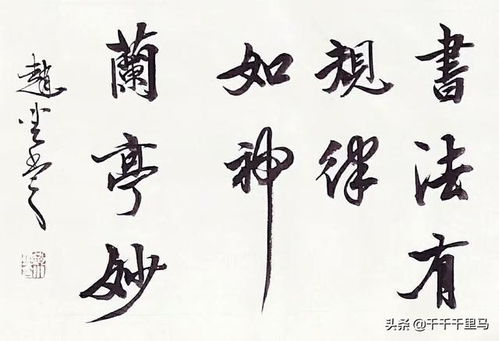 書法有
規律
如神
蘭亭妙
趙
头条 @千千千里马